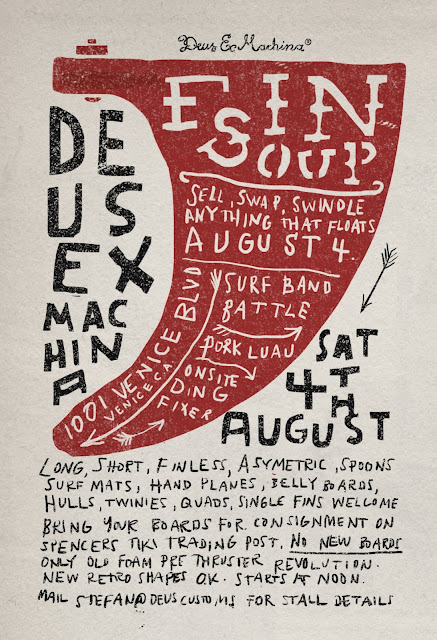 Deus Ex Machina®
DE
US
EX
MAC
HIN
A
FIN
SOUP
SELL, SWAP, SWINDLE
ANYTHING THAT FLOATS
AUGUST 4.
SURF BAND
BATTLE
PORK LUAU
ONSITE
DING
FIXER
1001 VENICE BLVD
VENICE CA.
SAT
4TH
AUGUST
LONG, SHORT, FINLESS, ASYMETRIC, SPOONS
SURF MATS, HAND PLANES, BELLY BOARDS,
HULLS, TWINIES, QUADS, SINGLE FINS WELCOME
BRING YOUR BOARDS FOR CONSIGNMENT ON
SPENCERS TIKI TRADING POST. NO NEW BOARDS
ONLY OLD FOAM PRE THRUSTER REVOLUTION.
NEW RETRO SHAPES O.K. STARTS AT NOON.
MAIL STEFAN@DEUSCUSTOMS FOR STALL DETAILS